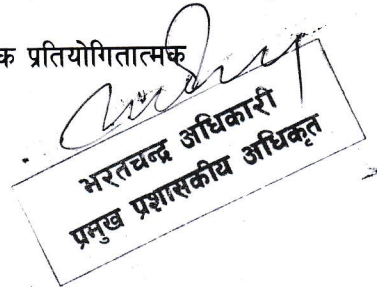 क प्रतियोगितात्मक
भरतचन्द्र अधिकारी
प्रमुख प्रशासकीय अधिकृत